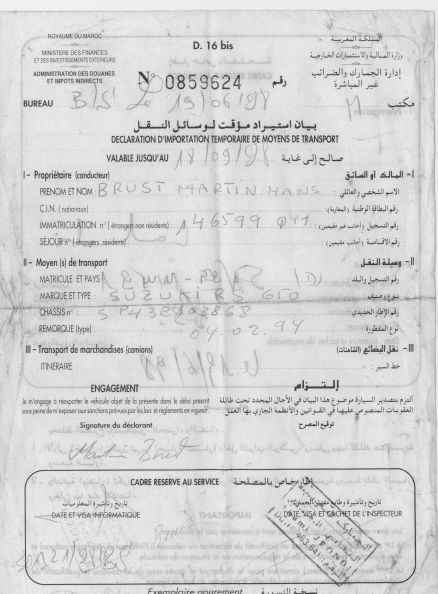 ROYAUME DU MAROC
المملكة المغربية
MINISTERE DES FINANCES
ET DES INVESTISSEMENTS EXTERIEURS
وزارة المالية والاستثمارات الخارجية
ADMINISTRATION DES DOUANES
ET IMPOTS INDIRECTS
إدارة الجمارك والضرائب
غير المباشرة
D. 16 bis
N° 0859624 رقم
BUREAU Le 19/06/98 مكتب
بيان استيراد مؤقت لوسائل النقل
DECLARATION D'IMPORTATION TEMPORAIRE DE MOYENS DE TRANSPORT
VALABLE JUSQU'AU 18/09/98 صالح إلى غاية
I - Propriétaire (conducteur) I- المالك او السائق
PRENOM ET NOM : BRUST MARTIN HANS الاسم الشخصي والعائلي :
C.I.N. (nationaux) : رقم البطاقة الوطنية (المغاربة) :
IMMATRICULATION n° (étrangers non résidents) : رقم التسجيل (أجانب غير مقيمين) :
SEJOUR n° (étrangers, résidents) : رقم الاقامة (أجانب مقيمين) :
II - Moyen (s) de transport II- وسيلة النقل :
MATRICULE ET PAYS (D) رقم التسجيل والبلد :
MARQUE ET TYPE : SUZUKI RS 650 نوع وصنف
CHASSIS n° : رقم الإطار الحديدي :
REMORQUE (type) : 04.02.94 نوع المقطورة :
III - Transport de marchandises (camions) III- نقل البضائع (الشاحنات)
ITINERAIRE : خط السير :
ENGAGEMENT
Je m'engage à réexporter le véhicule objet de la présente dans le délai prescrit
sous peine de m'exposer aux sanctions prévues par les lois et règlements en vigueur.
Signature du déclarant
إلتزام
ألتزم بتصدير السيارة موضوع هذا البيان في الآجال المحدد تحت طائلة
العقوبات المنصوص عليها في القوانين والأنظمة الجاري بها العمل
توقيع المصرح
CADRE RESERVE AU SERVICE إطار خاص بالمصلحة
تاريخ وتأشيرة المعلوميات
DATE ET VISA INFORMATIQUE
DATE, VISA ET CACHET DE L'INSPECTEUR
Exemplaire apurement نسخة التسوية